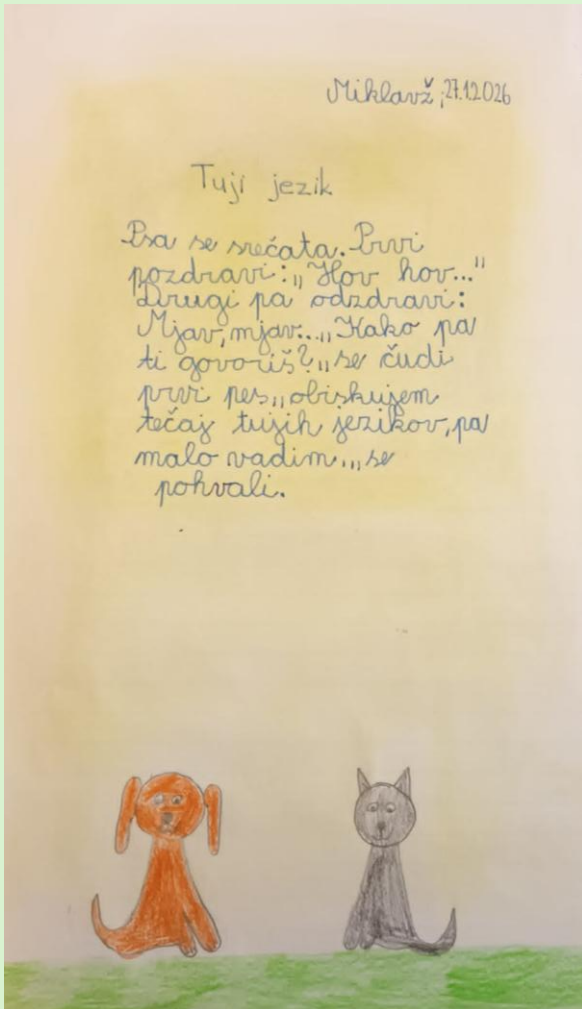 Miklavž, 27.1.2026
Tuji jezik
Psa se srećata. Prvi
pozdravi: „Hov hov..."
Drugi pa odzdravi:
Mjav, mjav...„Kako pa
ti govoriš?„ se čudi
prvi pes„ obiskujem
tečaj tujih jezikov, pa
malo vadim..„ se
pohvali.